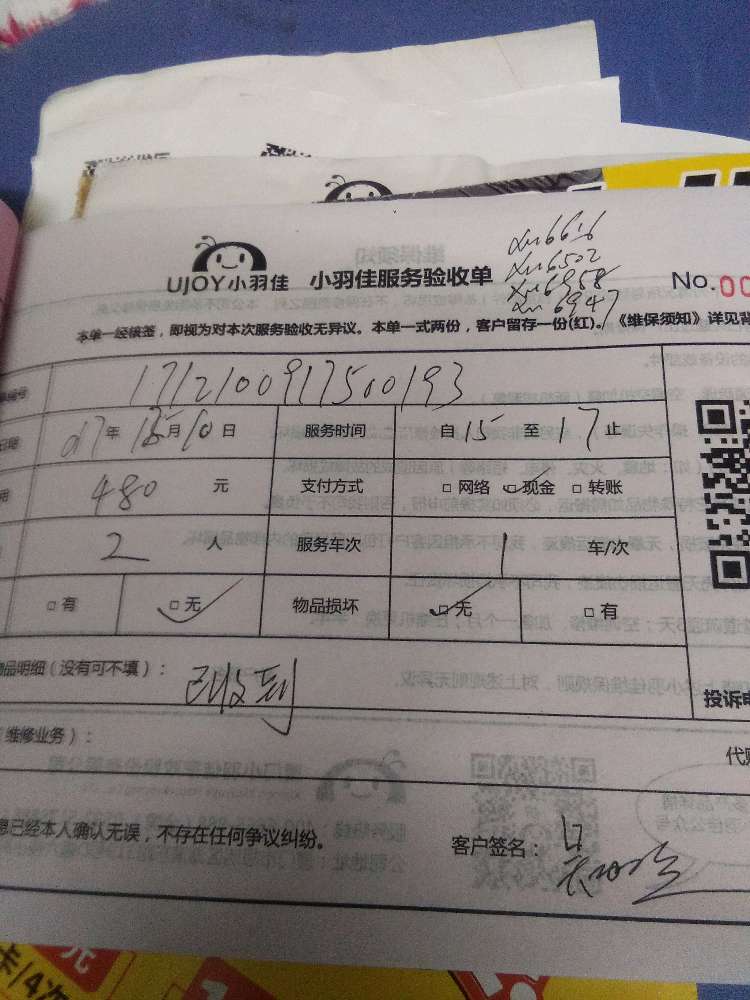 xu6616
xu6502
xu6958
xu6947
UJOY小羽佳 小羽佳服务验收单 No.00
本单一经核签，即视为对本次服务验收无异议。本单一式两份，客户留存一份(红)。《维保须知》详见背
编号 1712100917500193
日期 年 月10日 服务时间 自15至17止
480 元 支付方式 □网络 □现金 □转账
2 人 服务车次 1 车/次
□有 □无 物品损坏 □无 □有
物品明细（没有可不填）： 已收到
投诉电
（维修业务）：
代购
息已经本人确认无误，不存在任何争议纠纷。 客户签名：
元
卡/4次